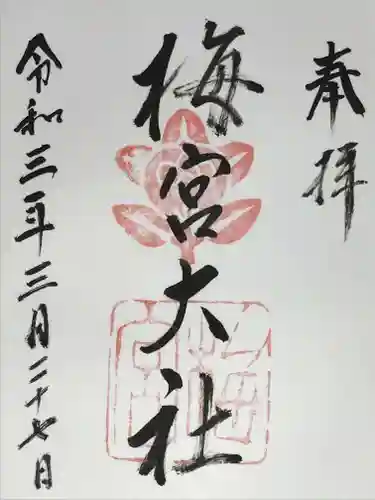 奉拝
梅宮大社
令和三年三月二十七日